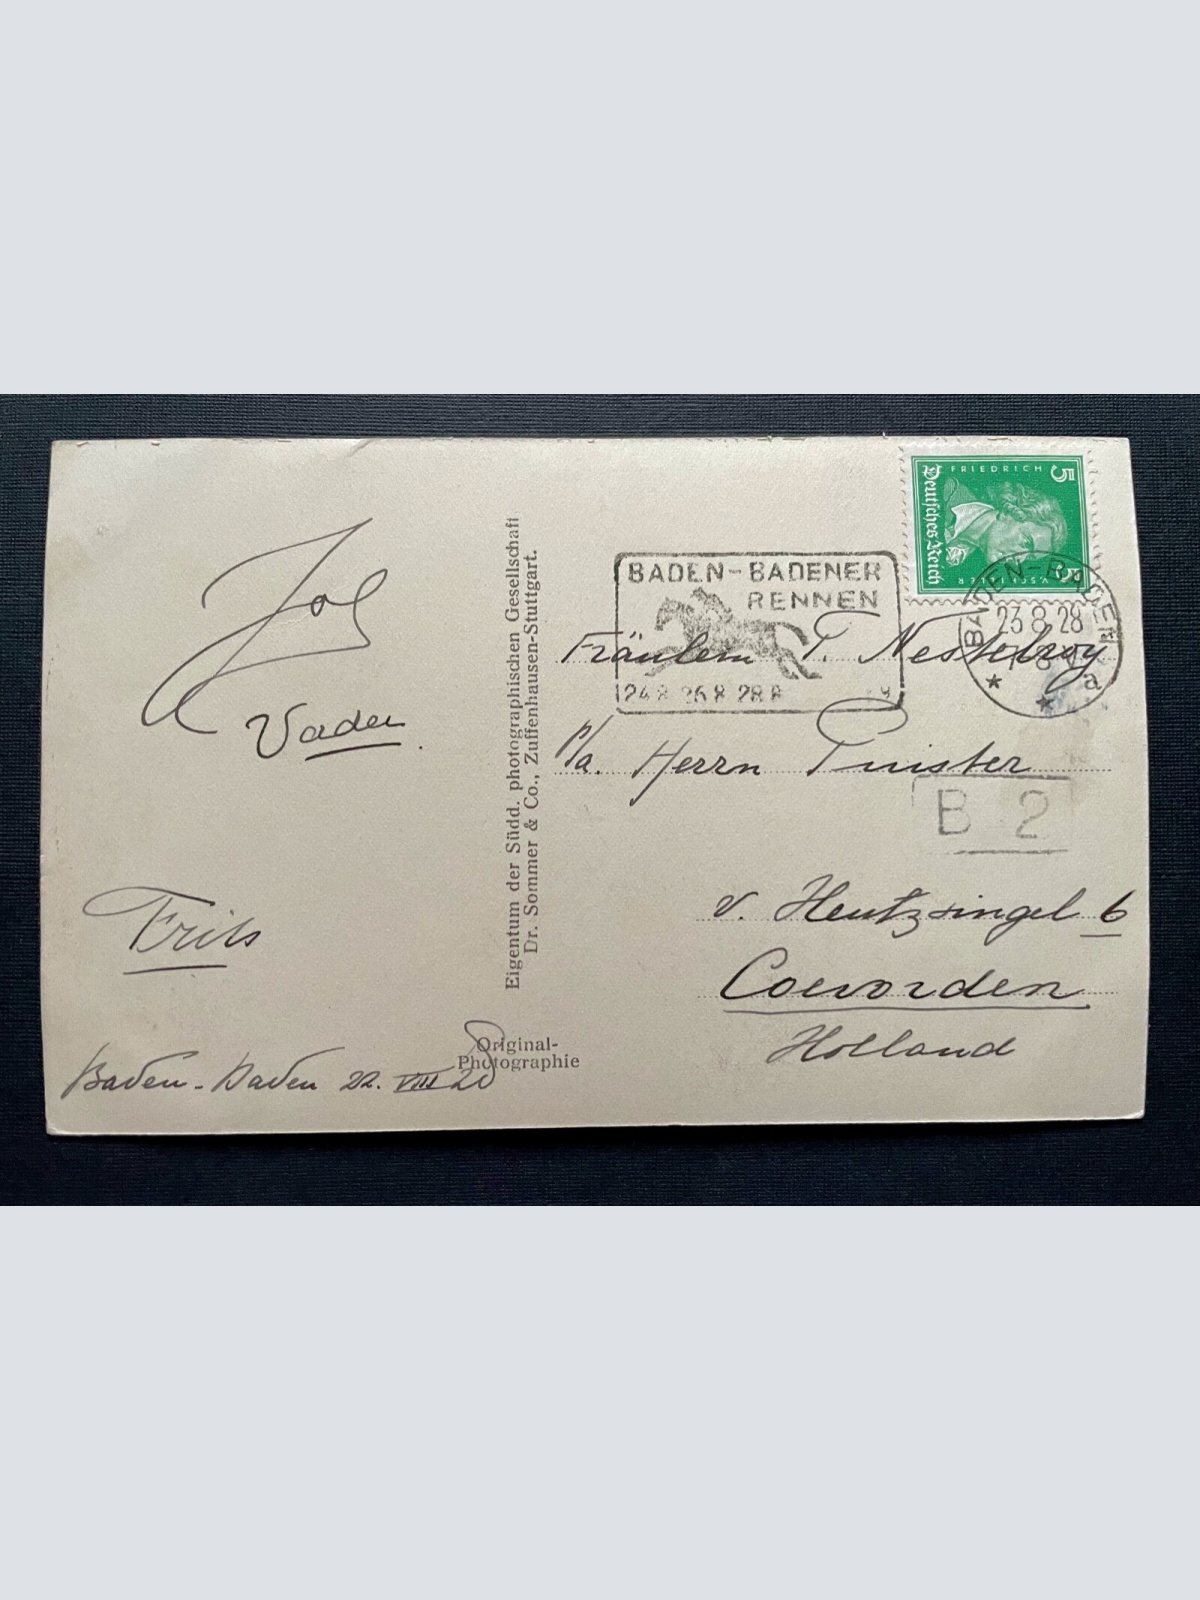 Jos
Vader.
Frits
Baden-Baden 22. VIII 28
Eigentum der Südd. photographischen Gesellschaft
Dr. Sommer & Co., Zuffenhausen-Stuttgart.
Original-
Photographie
5 FRIEDRICH
Deutsches Reich
V. SCHILLER 5
BADEN-BADENER
RENNEN
24.8. 26.8. 28.8.
BADEN-BADEN
23.8.28
a
Fräulein T. Nesselroy
p/a. Herrn
B 2
v. Heutzsingel 6
Coevorden
Holland